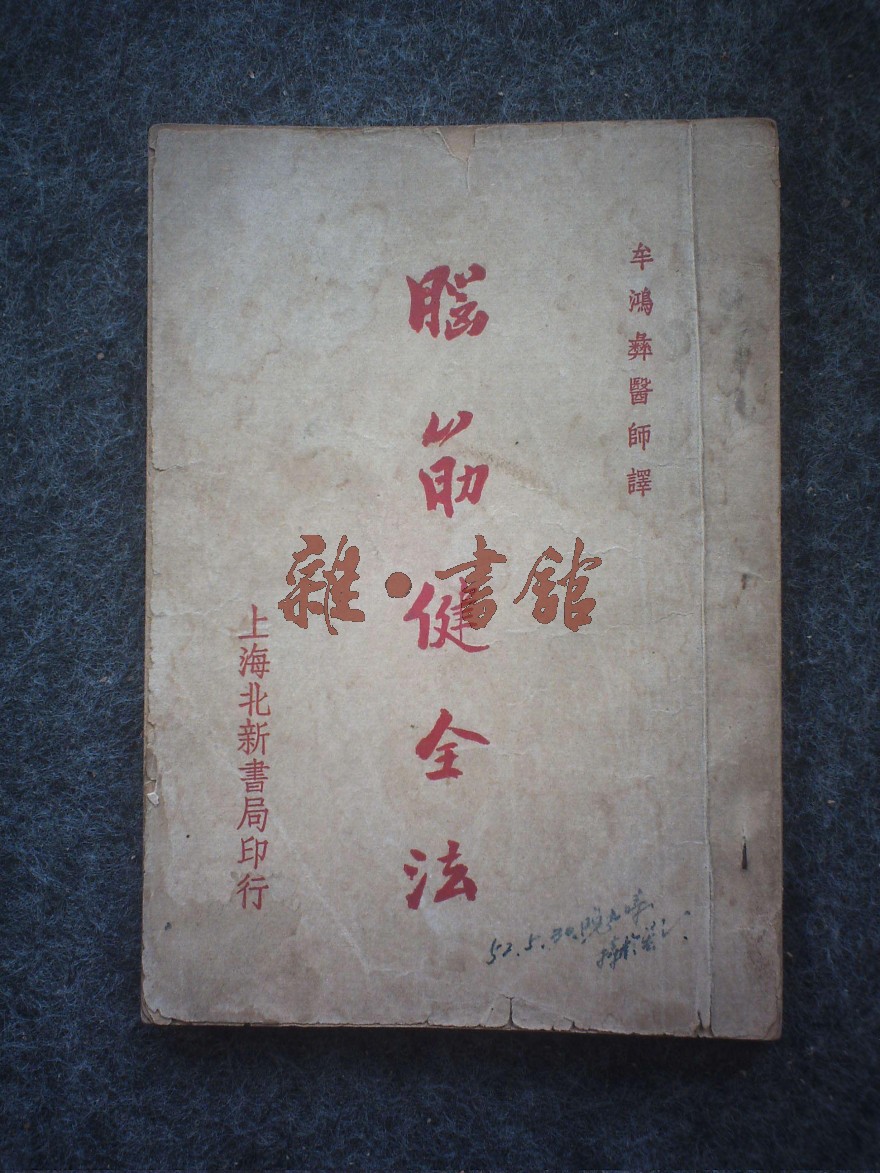 牟鴻彝醫師譯
腦筋健全法
上海北新書局印行
雜·書館
52.5.30.晚九時